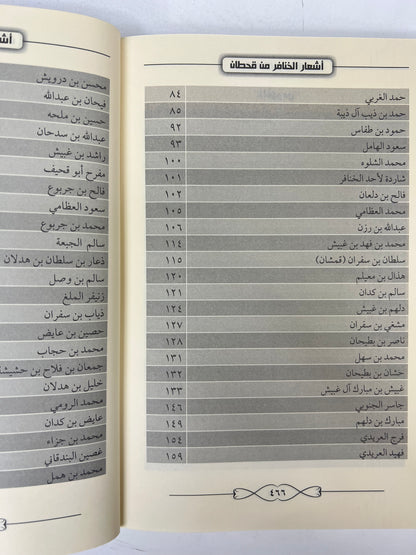 أشعار الخنافر من قحطان
حمد الغربي ٨٤
حمد بن ذيب آل ذيبة ٨٥
حمود بن طفاس ٩٢
سعود الهامل ٩٣
محمد الشلوه ١٠٠
شاردة لأحد الخنافر ١٠١
فالح بن دلعان ١٠٢
محمد العظامي ١٠٥
عبدالله بن رزن ١٠٦
محمد بن فهد بن غبيش ١١٤
سلطان بن سفران (قمشان) ١١٥
هذال بن معيلم ١٢٠
سالم بن كدان ١٢١
دلهم بن غبيش ١٢٤
مشعي بن سفران ١٢٧
ناصر بن بطيحان ١٢٨
محمد بن سهل ١٣١
خشان بن بطيحان ١٣٢
غبيش بن مبارك آل غبيش ١٣٣
جاسر الجنوبي ١٤٦
مبارك بن دلهم ١٤٩
فرج العريدي ١٥٤
فهيد العريدي ١٥٩
٤٦٦
محسن بن درويش
فيحان بن عبدالله
حسين بن ملحه
عبدالله بن سدحان
راشد بن غبيش
مفرح أبو قحيف
فالح بن جربوع
سعود العظامي
محمد بن جربوع
سالم الجبعة
ذعار بن سلطان بن هدلان
سالم بن وصل
زنيفر الملغ
ذياب بن سفران
حصين بن عايض
محمد بن حجاب
جمعان بن فلاح بن حشيشة
خليل بن هدلان
محمد الرومي
عايض بن كدان
محمد بن جزاء
غصين البندقاني
محمد بن همل